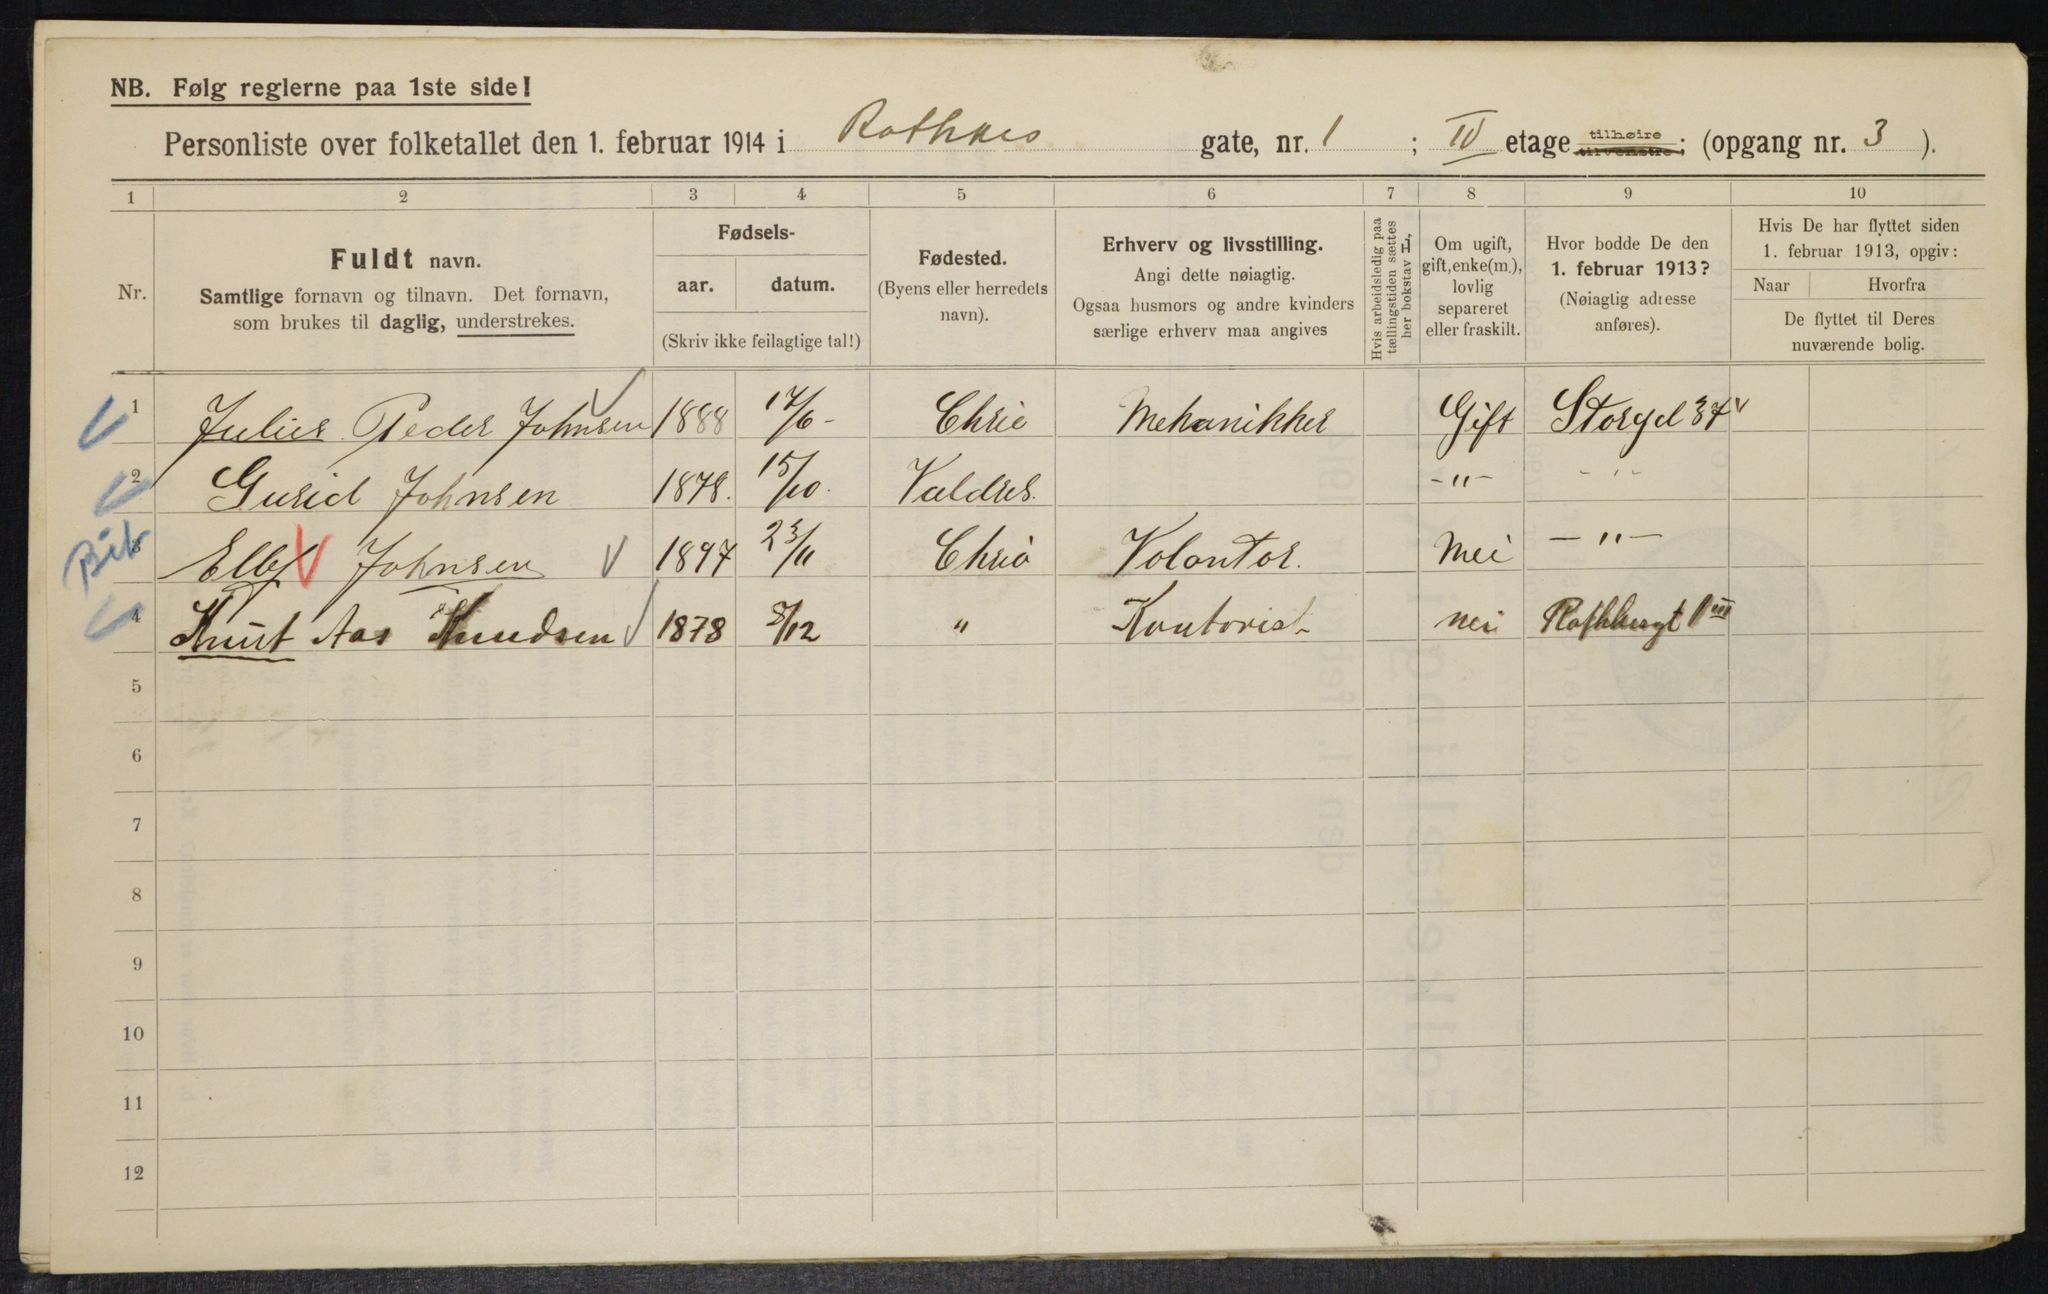 NB. Følg reglerne paa 1ste side!
Personliste over folketallet den 1. februar 1914 i Rathkes gate, nr. 1 ; IV etage tilhøire tilvenstre; (opgang nr. 3 ).
1 2 3 4 5 6 7 8 9 10
Nr.
Fuldt navn.
Samtlige fornavn og tilnavn. Det fornavn,
som brukes til daglig, understrekes.
Fødsels-
aar. datum.
(Skriv ikke feilagtige tal!)
Fødested.
(Byens eller herredets
navn).
Erhverv og livsstilling.
Angi dette nøiagtig.
Ogsaa husmors og andre kvinders
særlige erhverv maa angives
Hvis arbeidsledig paa
tællingstiden sættes
her bokstav L,
Om ugift,
gift, enke(m.),
lovlig
separeret
eller fraskilt.
Hvor bodde De den
1. februar 1913?
(Nøiagtig adresse
anføres).
Hvis De har flyttet siden
1. februar 1913, opgiv:
Naar Hvorfra
De flyttet til Deres
nuværende bolig.
1 Julius Peder Johnsen 1888 17/6 - Chria Mekanikker Gift Storgd 37 V
2 Gurid Johnsen 1878. 15/10. Valdres. -"- - "-
3 Johnsen 1897 23/11 Chria Volontør. Nei - " -
4 Knut Aas Knudsen 1878 8/12 " Kontorist nei Rathkesgt 1 III
5
6
7
8
9
10
11
12